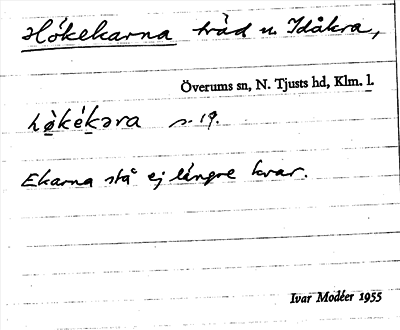 Hökekarna träd u. Idåkra,
Överums sn, N. Tjusts hd, Klm. l.
hø̀kékəra s. 19.
Ekarna stå ej längre kvar.
Ivar Modéer 1955